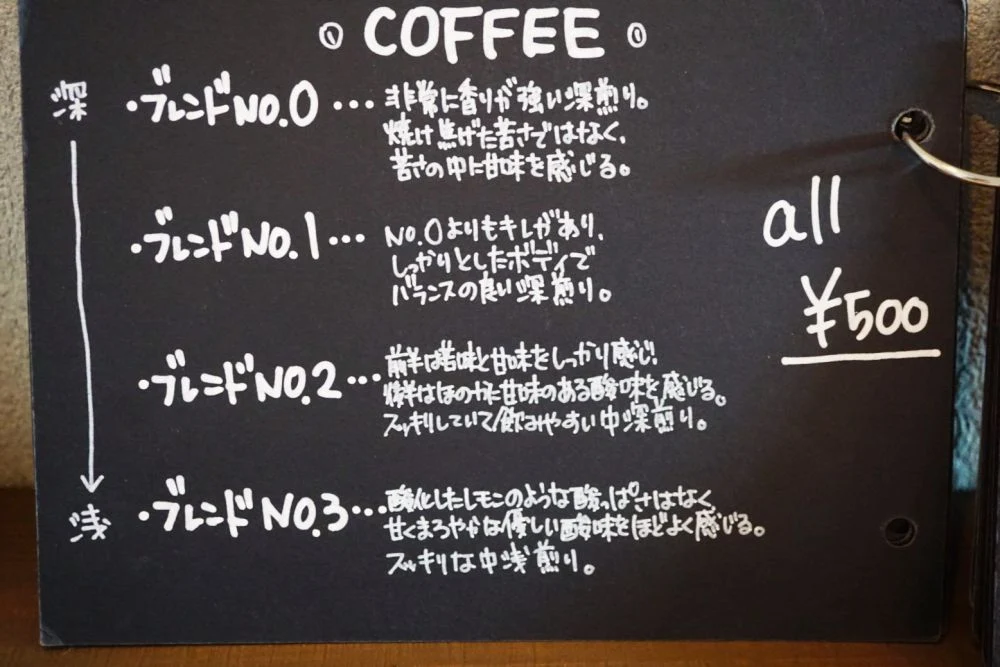 COFFEE
深
・ブレンドNO.0…
非常に香りが強い深煎り。
焼け焦げた苦さではなく、
苦さの中に甘味を感じる。
・ブレンドNO.1…
NO.0よりもキレがあり、
しっかりとしたボディで
バランスの良い深煎り。
・ブレンドNO.2…
前半は苦味と甘味をしっかり感じ、
後半はほのかに甘味のある酸味を感じる。
スッキリしていて飲みやすい中深煎り。
浅
・ブレンドNO.3…
酸化したレモンのような酸っぱさはなく
甘くまろやかな優しい酸味をほどよく感じる。
スッキリな中浅煎り。
all
¥500